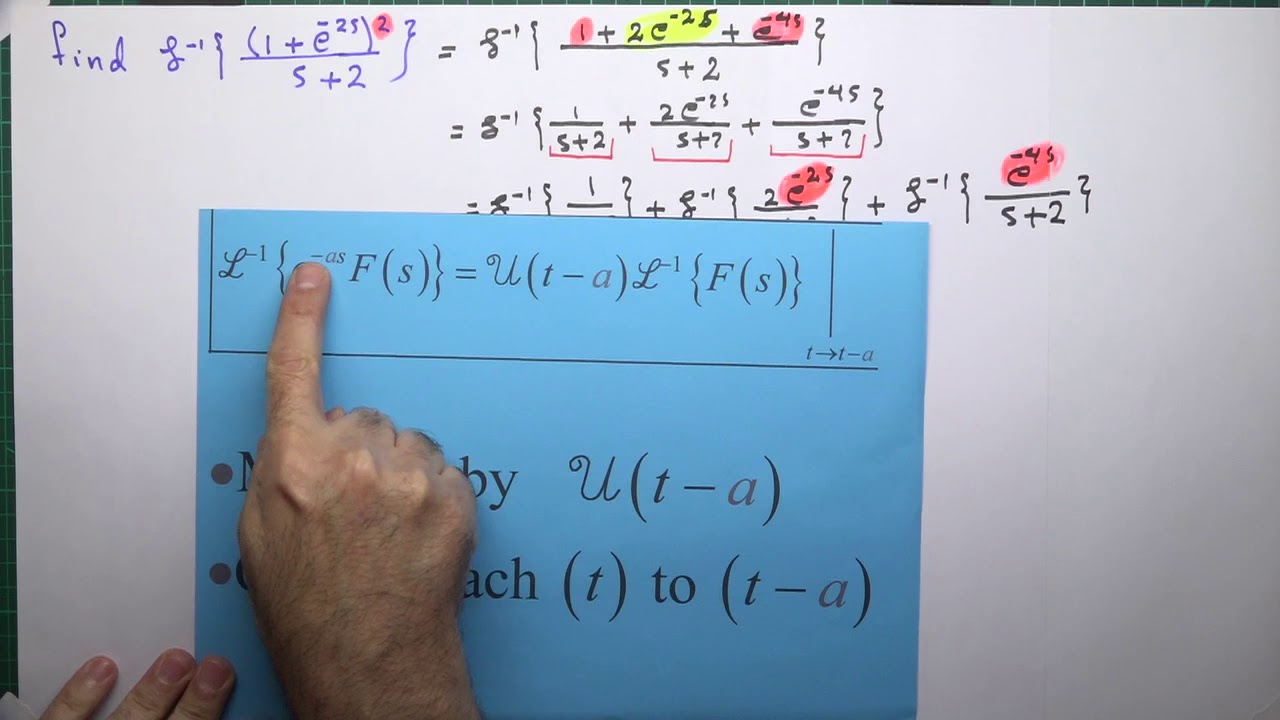 find ℒ⁻¹{(1 + e⁻²ˢ)² / s+2} = ℒ⁻¹{1 + 2e⁻²ˢ + e⁻⁴ˢ / s+2}
= ℒ⁻¹{1/s+2 + 2e⁻²ˢ/s+2 + e⁻⁴ˢ/s+2}
= ℒ⁻¹{1/ } + ℒ⁻¹{2e⁻²ˢ/ } + ℒ⁻¹{e⁻⁴ˢ/s+2}
ℒ⁻¹{ ⁻ᵃˢ F(s)} = 𝒰(t−a) ℒ⁻¹{F(s)} |
t→t−a
by 𝒰(t−a)
(t) to (t−a)